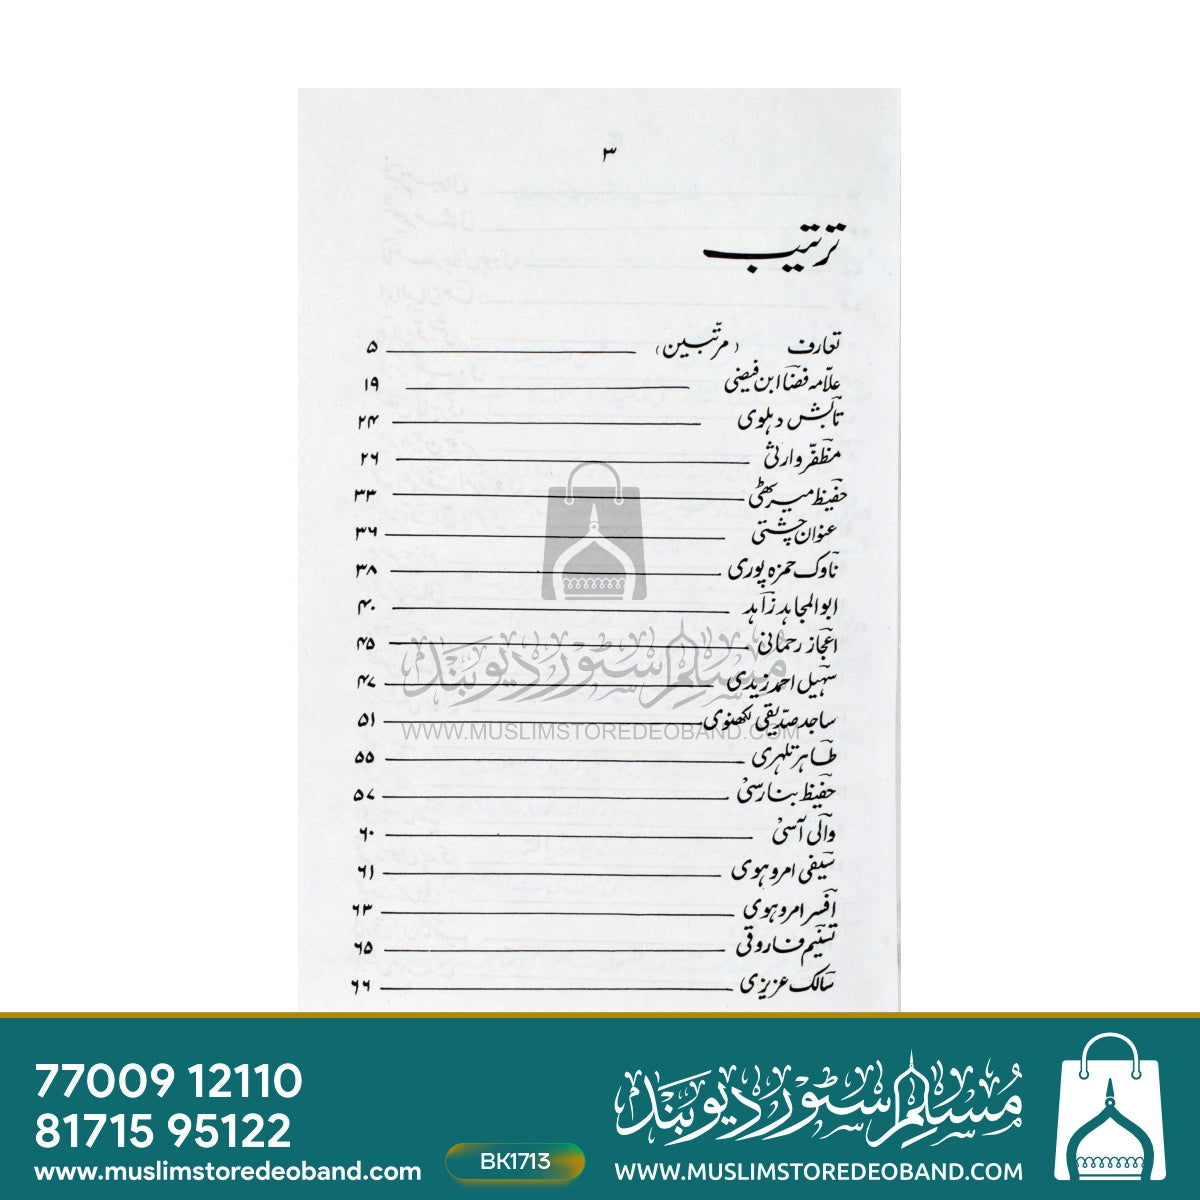 ۳
ترتیب
تعارف (مرتّبین) ۵
علّامہ فضا ابن فیضی ۱۹
تابش دہلوی ۲۴
مظفّر وارثی ۲۶
حفیظ میرٹھی ۳۳
عنوان چشتی ۳۶
ناوک حمزہ پوری ۳۸
ابوالمجاہد زاہد ۴۰
اعجاز رحمانی ۴۵
سہیل احمد زیدی ۴۷
ساجد صدّیقی لکھنوی ۵۱
طاہر تلہری ۵۵
حفیظ بنارسی ۵۷
والی آسی ۶۰
سیفی امروہوی ۶۱
افسر امروہوی ۶۳
تسنیم فاروقی ۶۵
سالک عزیزی ۶۶
مسلم سٹور دیوبند
WWW.MUSLIMSTOREDEOBAND.COM
77009 12110
81715 95122
www.muslimstoredeoband.com
BK1713
مُسلم سٹور دیوبند
WWW.MUSLIMSTOREDEOBAND.COM